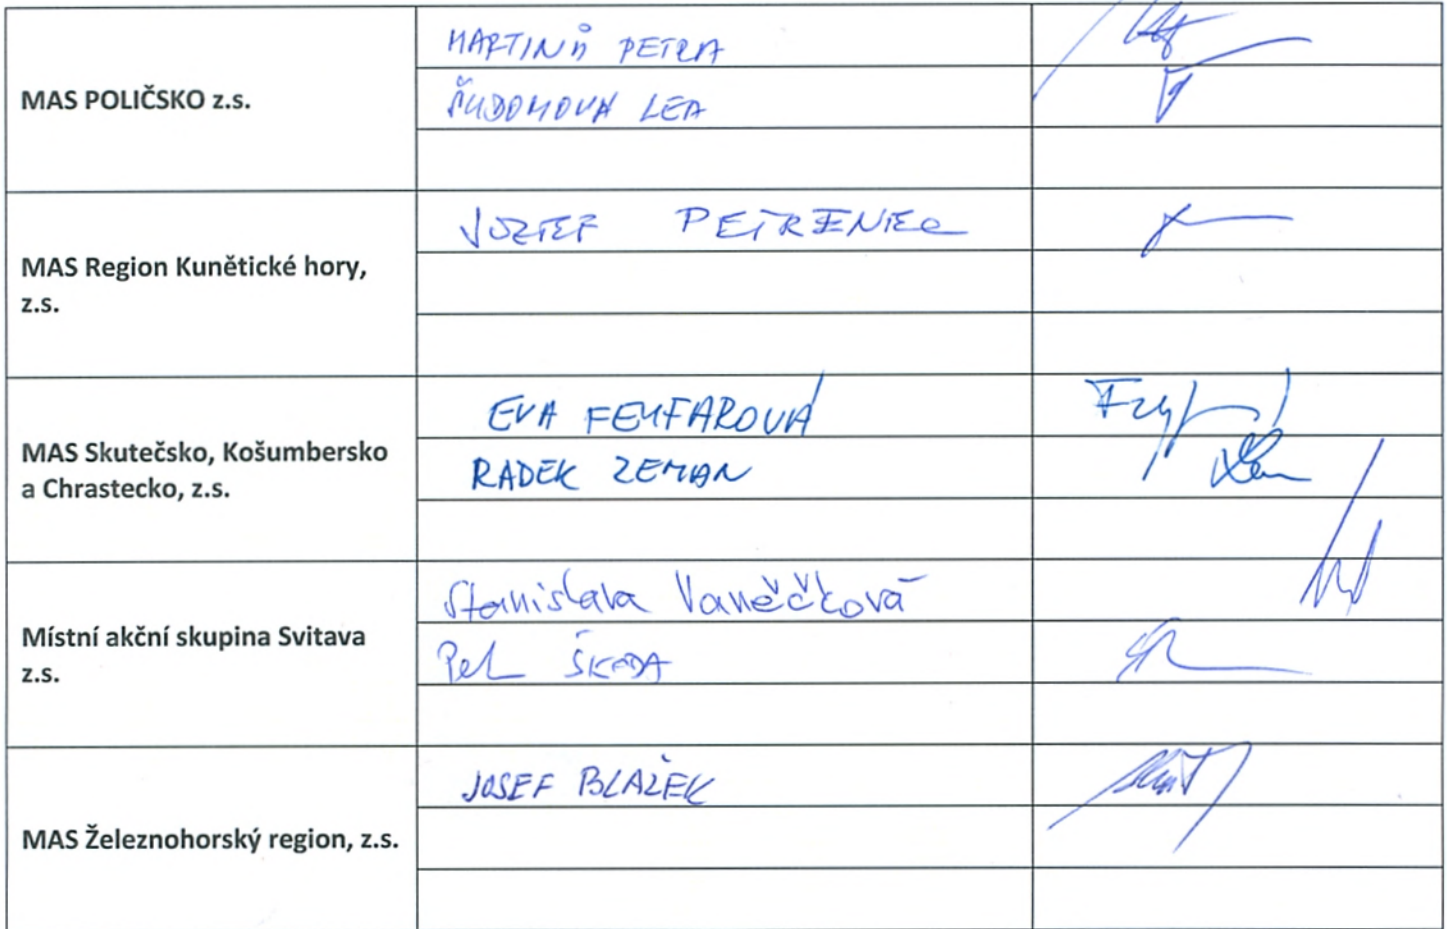 MAS POLIČSKO z.s.
MARTINŮ PETRA
LEA
MAS Region Kunětické hory,
z.s.
JOZEF PETRENEC
MAS Skutečsko, Košumbersko
a Chrastecko, z.s.
EVA FEMFAROVÁ
RADEK ZEMAN
Místní akční skupina Svitava
z.s.
Stanislava Vaněčková
ŠKODA
MAS Železnohorský region, z.s.
JOSEF BLAŽEK